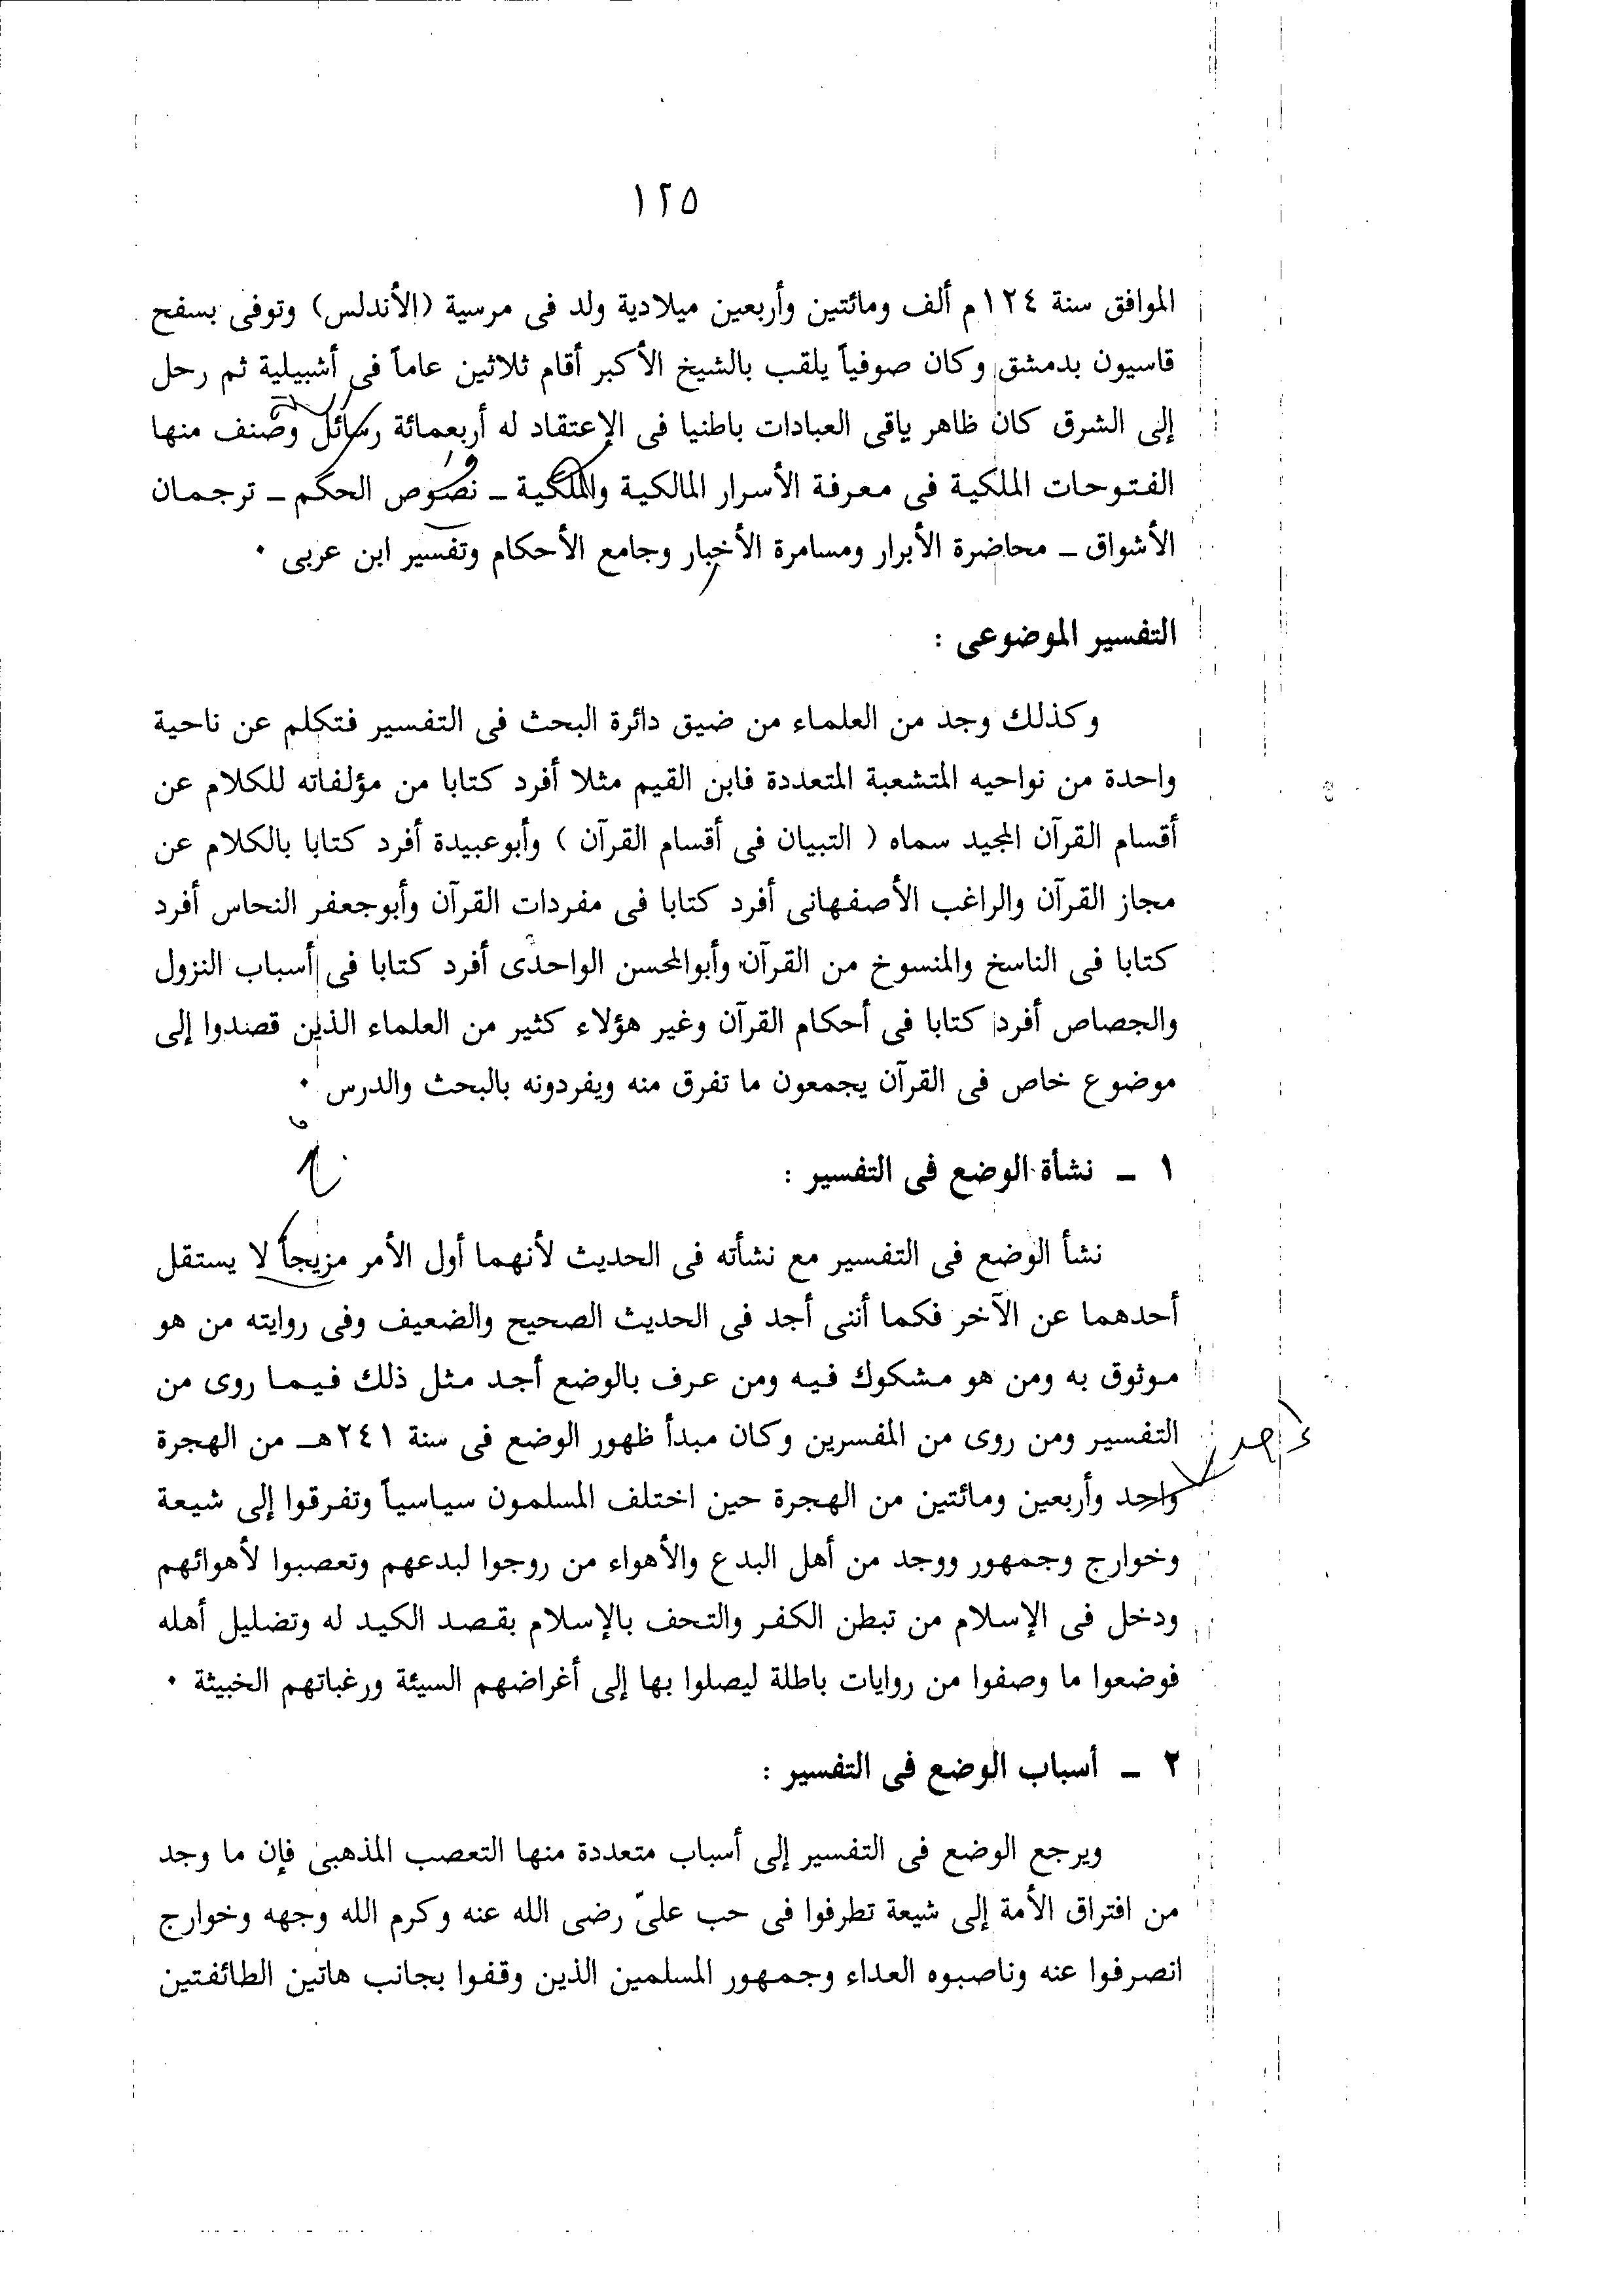 ١٢٥
الموافق سنة ١٢٤م ألف ومائتين وأربعين ميلادية ولد فى مرسية (الأندلس) وتوفى بسفح
قاسيون بدمشق وكان صوفياً يلقب بالشيخ الأكبر أقام ثلاثين عاماً فى أشبيلية ثم رحل
إلى الشرق كان ظاهر ياقى العبادات باطنيا فى الإعتقاد له أربعمائة رسائل وصنف منها
الفتوحات الملكية فى معرفة الأسرار المالكية والملكية ــ نصوص الحكم ــ ترجمان
الأشواق ــ محاضرة الأبرار ومسامرة الأخبار وجامع الأحكام وتفسير ابن عربى ٠
التفسير الموضوعى :
وكذلك وجد من العلماء من ضيق دائرة البحث فى التفسير فتكلم عن ناحية
واحدة من نواحيه المتشعبة المتعددة فابن القيم مثلا أفرد كتابا من مؤلفاته للكلام عن
أقسام القرآن المجيد سماه ( التبيان فى أقسام القرآن ) وأبوعبيدة أفرد كتابا بالكلام عن
مجاز القرآن والراغب الأصفهانى أفرد كتابا فى مفردات القرآن وأبوجعفر النحاس أفرد
كتابا فى الناسخ والمنسوخ من القرآن وأبوالمحسن الواحدى أفرد كتابا فى أسباب النزول
والجصاص أفرد كتابا فى أحكام القرآن وغير هؤلاء كثير من العلماء الذين قصدوا إلى
موضوع خاص فى القرآن يجمعون ما تفرق منه ويفردونه بالبحث والدرس ٠
١ ــ نشأة الوضع فى التفسير :
نشأ الوضع فى التفسير مع نشأته فى الحديث لأنهما أول الأمر مزيجاً لا يستقل
أحدهما عن الآخر فكما أننى أجد فى الحديث الصحيح والضعيف وفى روايته من هو
موثوق به ومن هو مشكوك فيه ومن عرف بالوضع أجد مثل ذلك فيما روى من
التفسير ومن روى من المفسرين وكان مبدأ ظهور الوضع فى سنة ٢٤١هـ من الهجرة
واحد وأربعين ومائتين من الهجرة حين اختلف المسلمون سياسياً وتفرقوا إلى شيعة
وخوارج وجمهور ووجد من أهل البدع والأهواء من روجوا لبدعهم وتعصبوا لأهوائهم
ودخل فى الإسلام من تبطن الكفر والتحف بالإسلام بقصد الكيد له وتضليل أهله
فوضعوا ما وصفوا من روايات باطلة ليصلوا بها إلى أغراضهم السيئة ورغباتهم الخبيثة ٠
٢ ــ أسباب الوضع فى التفسير :
ويرجع الوضع فى التفسير إلى أسباب متعددة منها التعصب المذهبى فإن ما وجد
من افتراق الأمة إلى شيعة تطرفوا فى حب علىّ رضى الله عنه وكرم الله وجهه وخوارج
انصرفوا عنه وناصبوه العداء وجمهور المسلمين الذين وقفوا بجانب هاتين الطائفتين